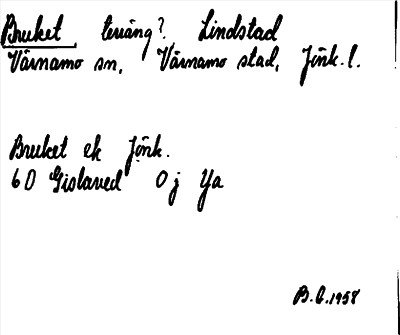 Bruket, teräng? Lindstad
Värnamo sn, Värnamo stad, Jönk. l.
Bruket ek Jönk.
6D Gislaved 0j Ya
B.C. 1958